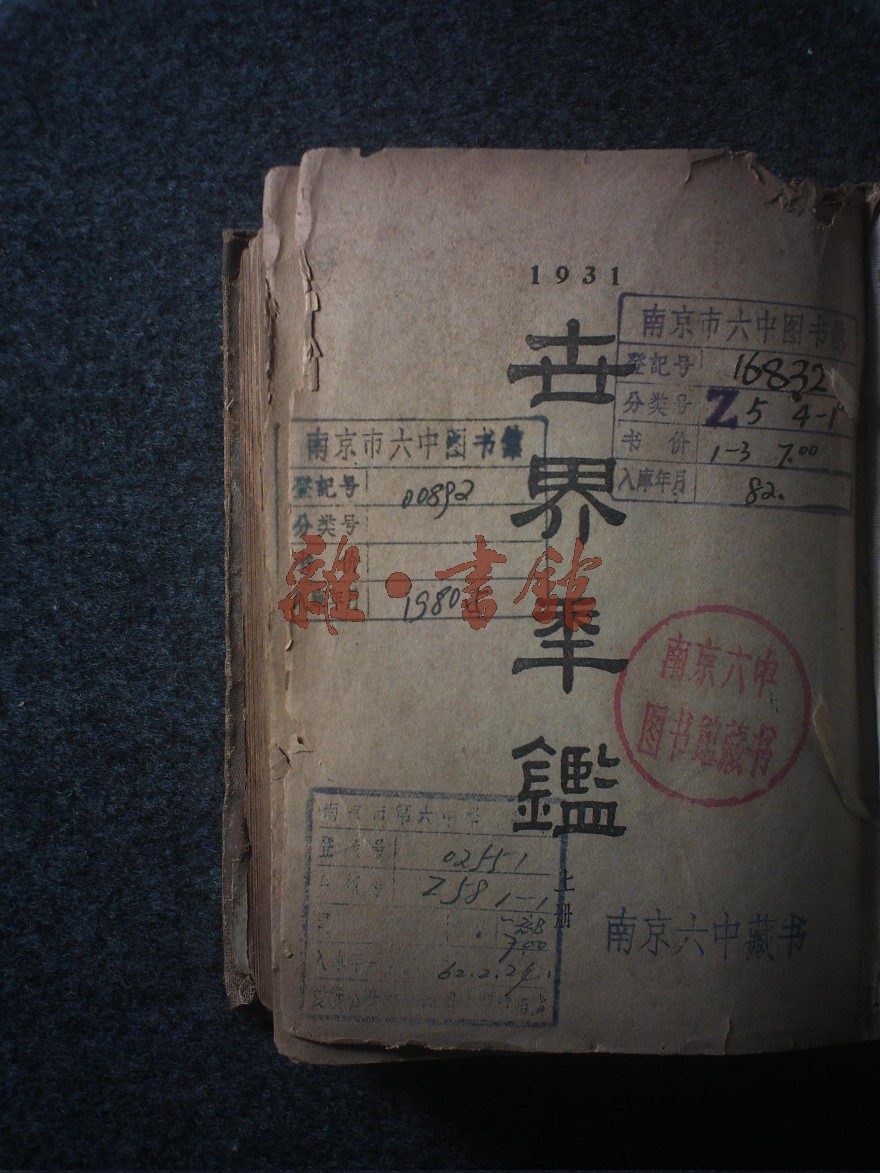 1931
世
界
年
鑑
上册
南京市六中图书馆
登记号 16832
分类号 Z5 4-1
书价 1-3 7.00
入库年月 82.
南京市六中图书馆
登记号 00892
分类号
1980
雜·書館
南京六中
图书馆藏书
0255-1
Z58 1-1
7.00
62.2.24.
南京六中藏书